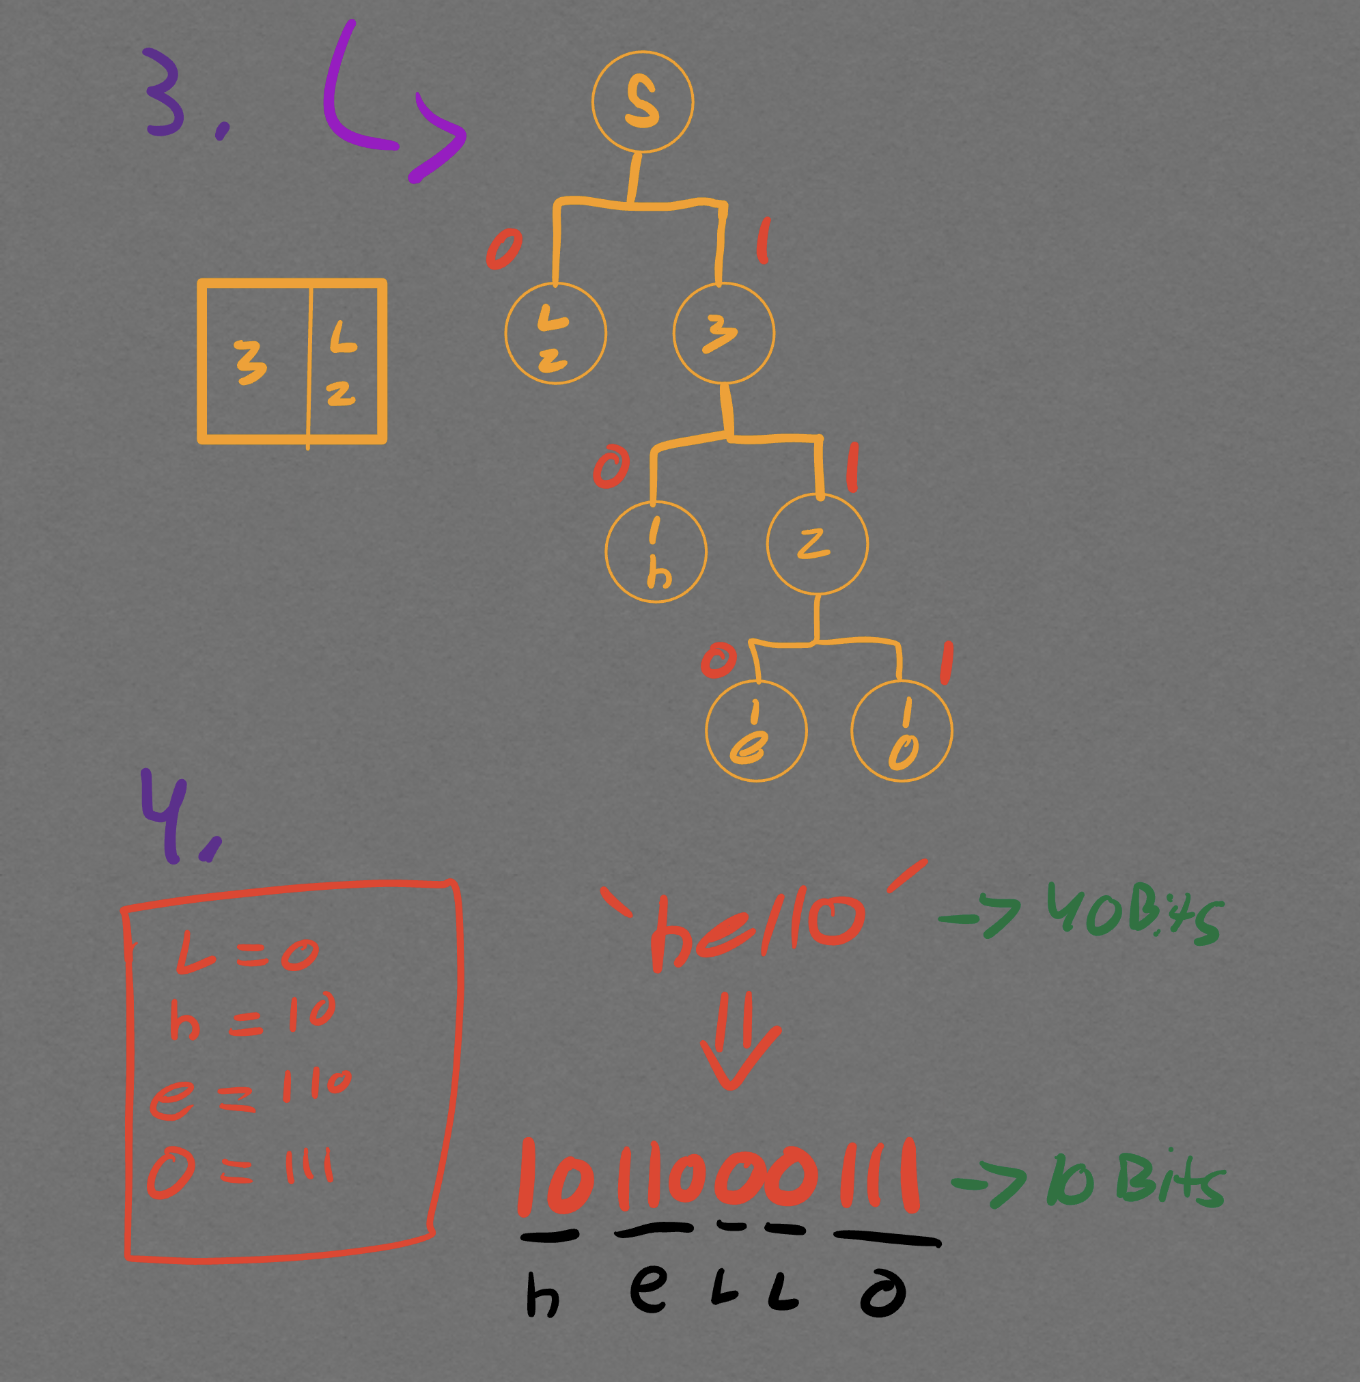 3.
5
0 1
L 3
2
3 L
2
0 1
1 2
h
0 1
1 1
e 0
4.
L = 0
h = 10
e = 110
0 = 111
`hello´ -> 40 Bits
1011000111 -> 10 Bits
h e L L o